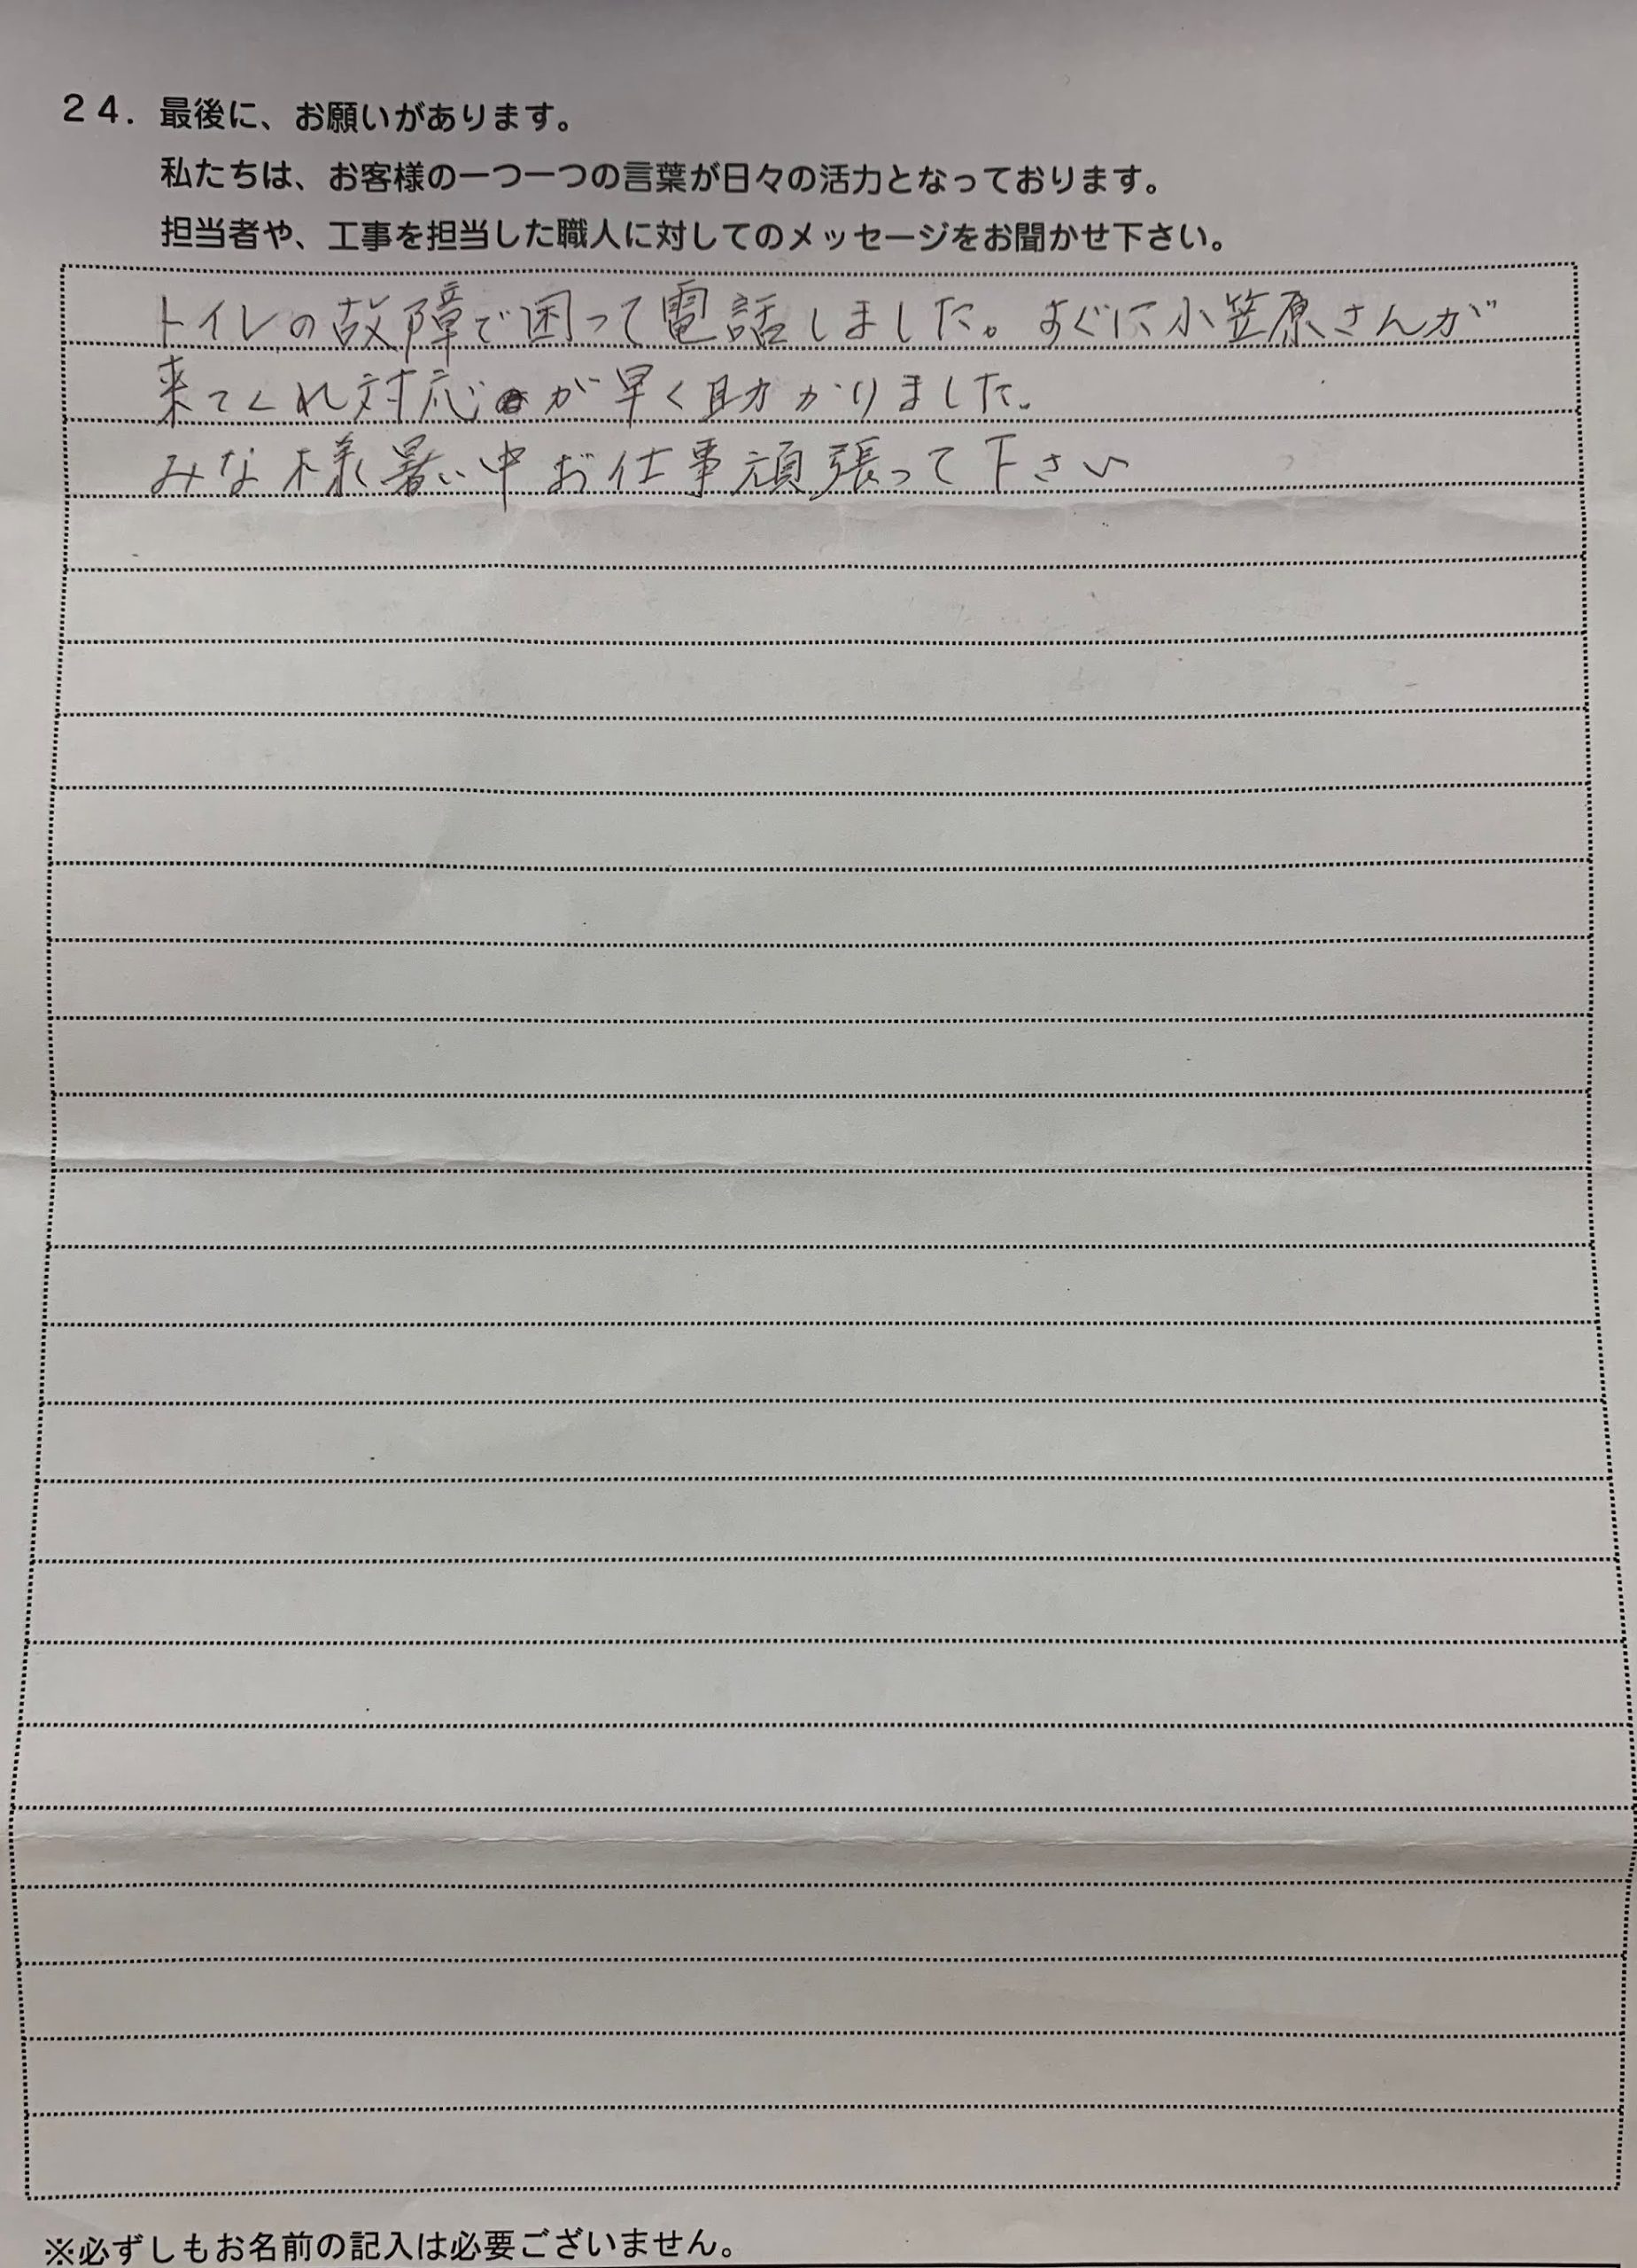 ２４．最後に、お願いがあります。
私たちは、お客様の一つ一つの言葉が日々の活力となっております。
担当者や、工事を担当した職人に対してのメッセージをお聞かせ下さい。
トイレの故障で困って電話しました。すぐに小笠原さんが
来てくれ対応が早く助かりました。
みな様暑い中お仕事頑張って下さい
※必ずしもお名前の記入は必要ございません。